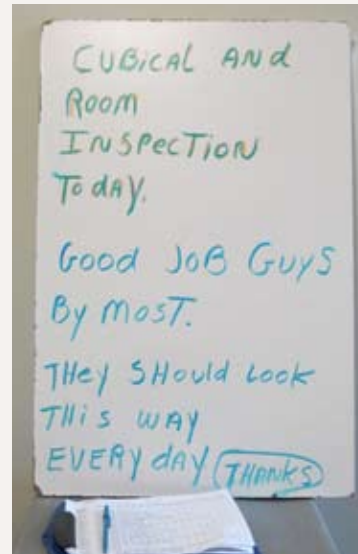 CUBiCAL ANd
ROOM
INSPECTiON
TodAy.
Good JoB GuyS
By MOST.
THey SHould Look
THiS WAY
EVERY dAY THANKS